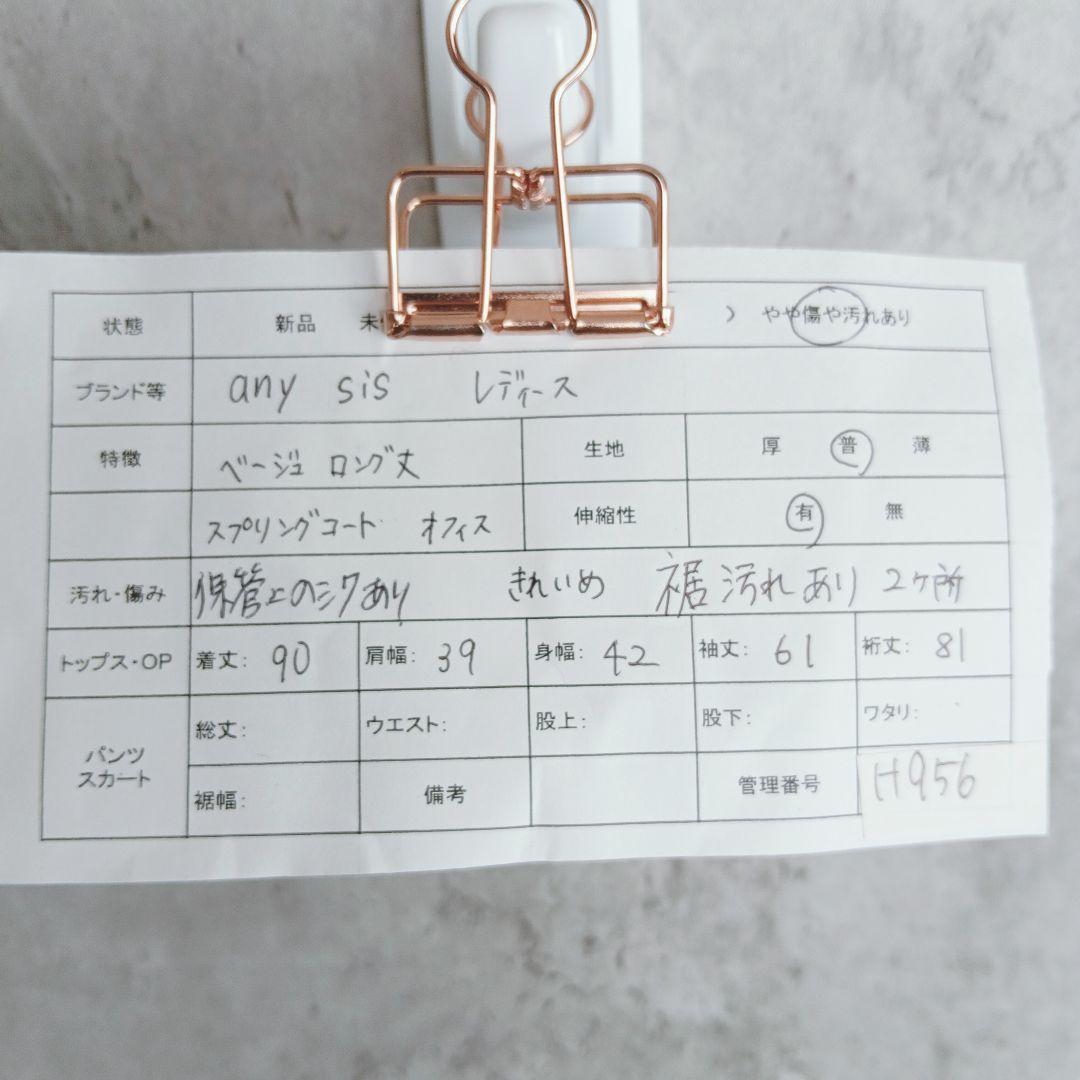 状態 新品 未 ) やや傷や汚れあり
ブランド等 any sis レディース
特徴 ベージュ ロング丈 生地 厚 普 薄
スプリングコート オフィス 伸縮性 有 無
汚れ・傷み 保管上のシワあり きれいめ 裾汚れあり 2ヶ所
トップス・OP 着丈: 90 肩幅: 39 身幅: 42 袖丈: 61 裄丈: 81
パンツ スカート 総丈: ウエスト: 股上: 股下: ワタリ:
裾幅: 備考 管理番号 H956